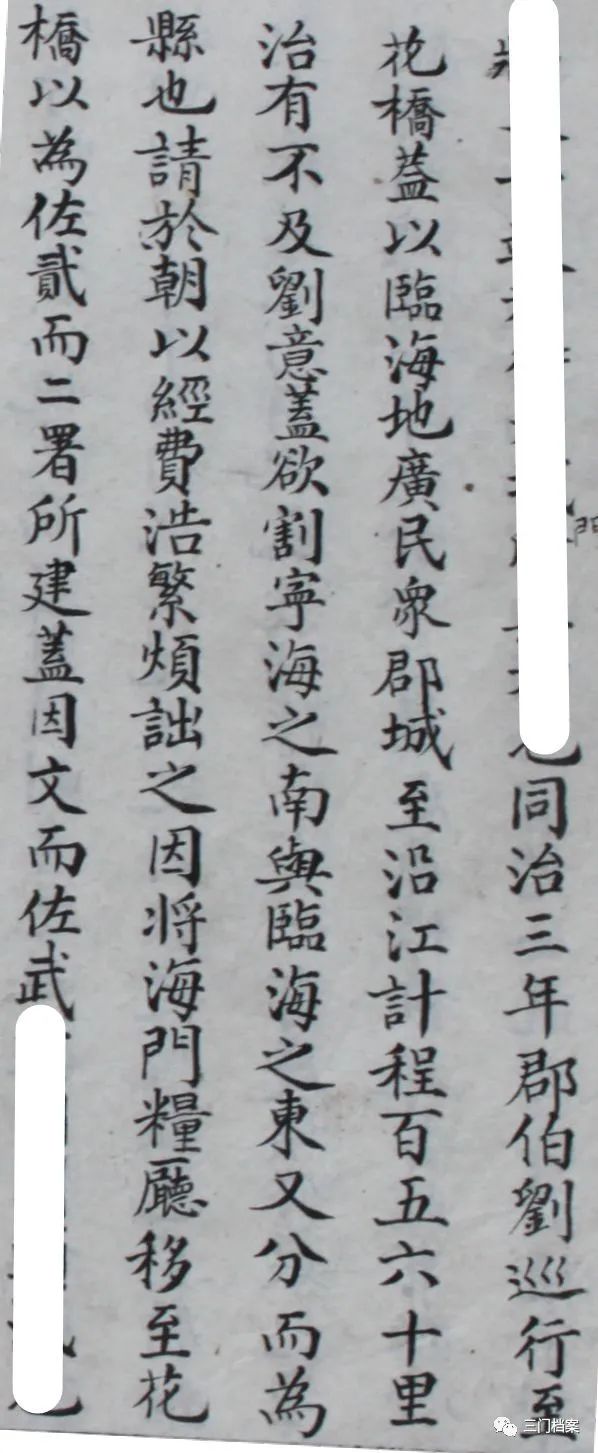 同治三年郡伯劉巡行至
花橋蓋以臨海地廣民衆郡城至沿江計程百五六十里
治有不及劉意蓋欲割寧海之南與臨海之東又分而為
縣也請於朝以經費浩繁煩詘之因将海門糧廳移至花
橋以為佐貳而二署所建蓋因文而佐武
門
三门档案